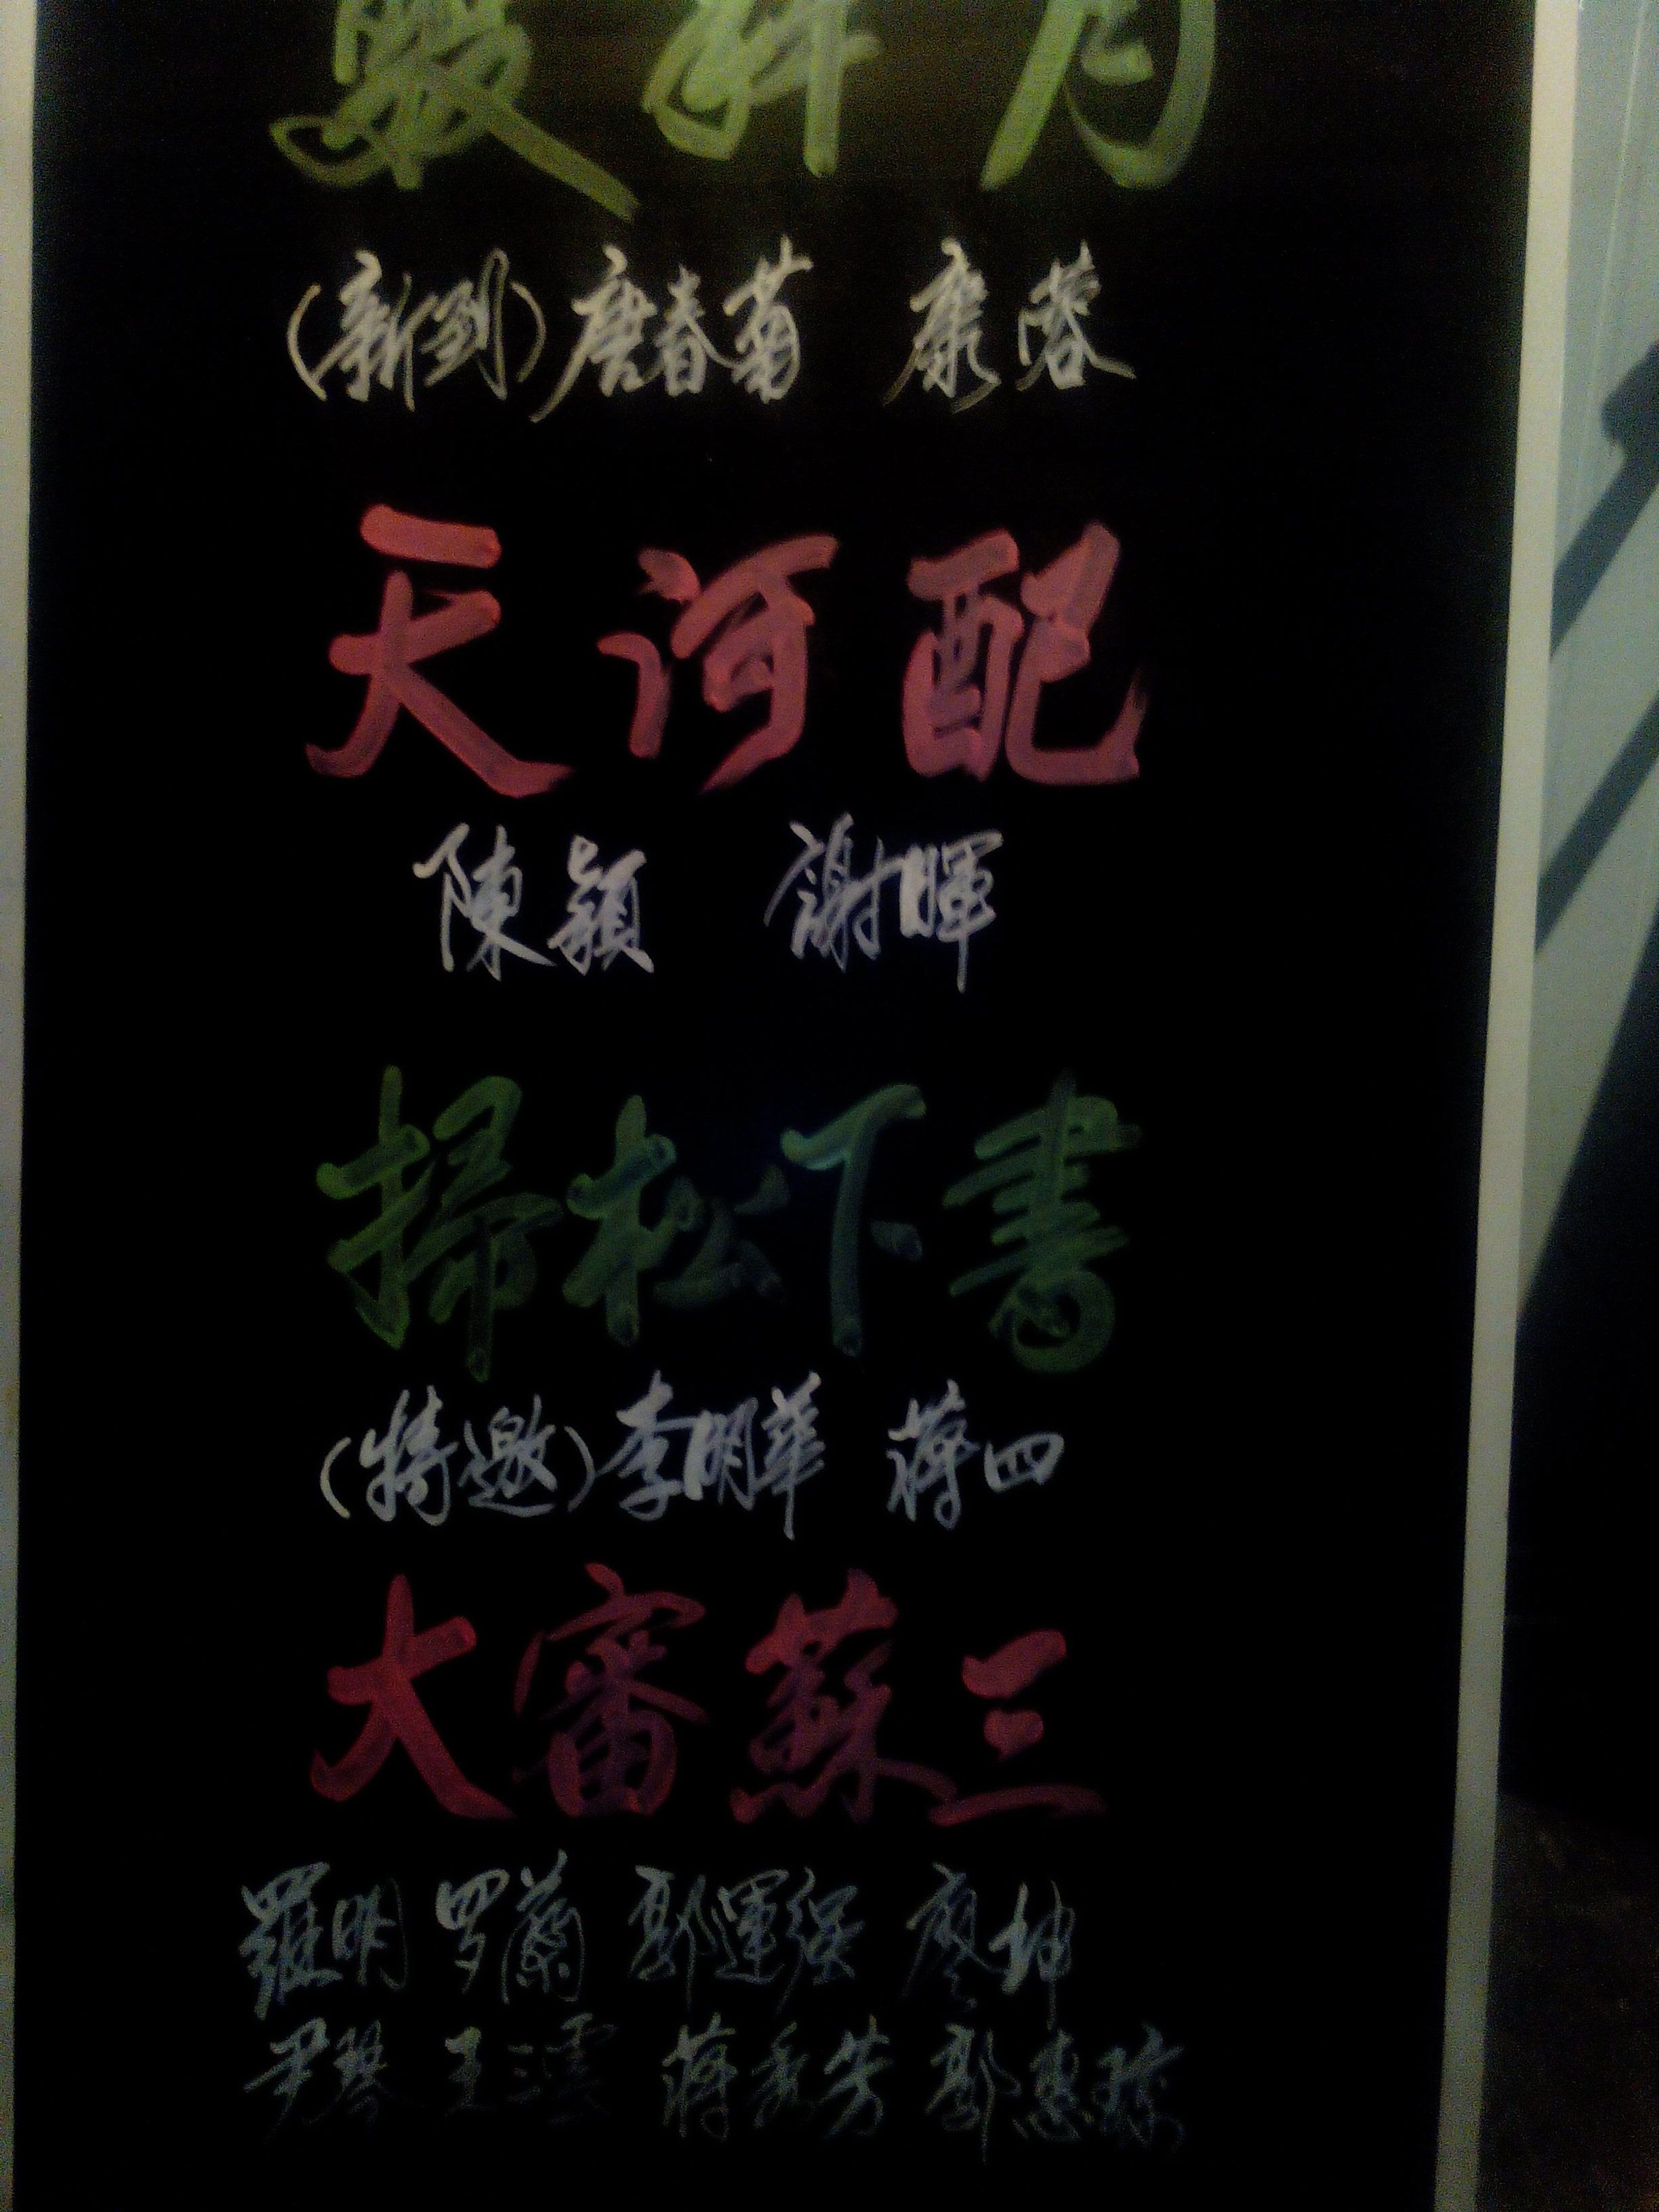 双拜月
(新到)唐春菊 康蓉
天河配
陳穎 謝暉
掃松下書
(特邀)李明華 蔣四
大審蘇三
羅明 罗蘭 郭運强 廖坤
尹琴 王三雲 蔣秀芳 郭惠琼